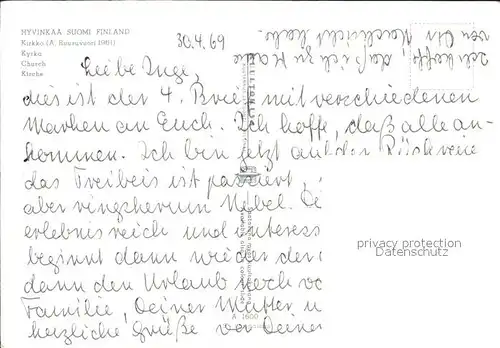 HYVINKÄÄ SUOMI FINLAND
Kirkko (A. Ruusuvuori 1961)
Kyrka
Church
Kirche
30.4.69
Ich hoffe, daß ich zu Hause
von Dir Nachricht habe.
Liebe Inge,
dies ist der 4. Brief mit verschiedenen
Marken an Euch. Ich hoffe, daß alle an-
kommen. Ich bin jetzt auf der Rückreise
das Treibeis ist passiert,
aber ringsherum Nebel.
erlebnisreich und interess
beginnt dann wieder der
dann den Urlaub noch vo
Familie, Deiner Mutter u
herzliche Grüße von Deiner
A 1600
privacy protection
Datenschutz